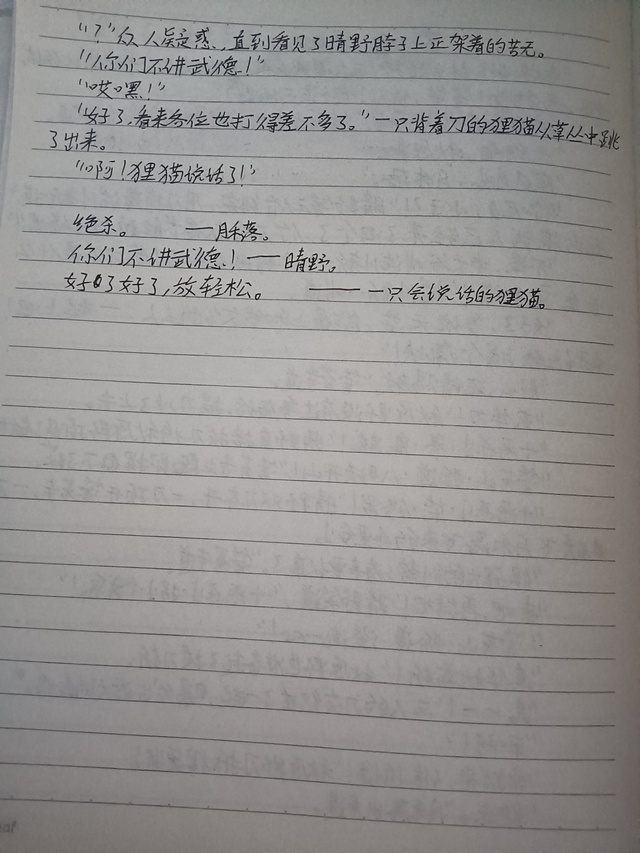 “?”众人疑惑，直到看见了晴野脖子上正架着的苦无。
“你们不讲武德！”
“哎嘿！”
“好了，看来各位也打得差不多了。”一只背着刀的狸猫从草丛中跳
了出来。
“啊！狸猫说话了！”
绝杀。 ——落。
你们不讲武德！——晴野。
好了好了，放轻松。 ——一只会说话的狸猫。